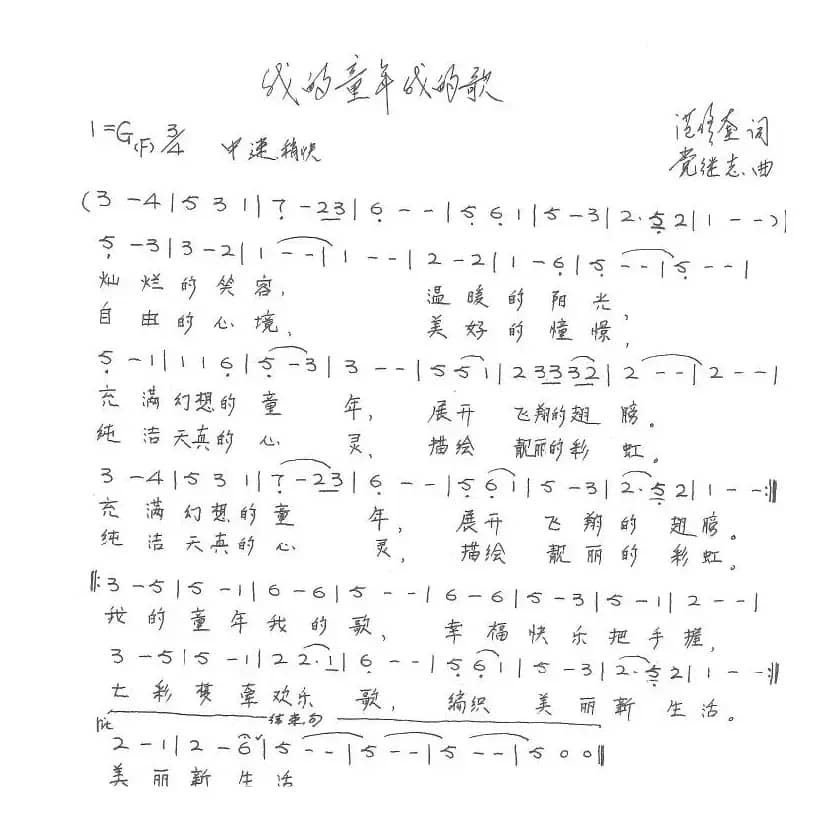 我的童年我的歌
1=G(F) 3/4 中速稍快
范修奎 词
党继志 曲
(3 - 4 | 5 3 1 | 7 - 2 3 | 6 - - | 5 6 1 | 5 - 3 | 2· 5 2 | 1 - - ) |
5 - 3 | 3 - 2 | 1 - - | 1 - - | 2 - 2 | 1 - 6 | 5 - - | 5 - - |
灿 烂 的 笑 容, 温 暖 的 阳 光,
自 由 的 心 境、 美 好 的 憧 憬,
5 - 1 | 1 1 6 | 5 - 3 | 3 - - | 5 5 1 | 2 3 3 3 2 | 2 - - | 2 - - |
充 满 幻 想 的 童 年, 展 开 飞翔的翅 膀。
纯 洁 天 真 的 心 灵, 描 绘 靓丽的彩 虹。
3 - 4 | 5 3 1 | 7 - 2 3 | 6 - - | 5 6 1 | 5 - 3 | 2· 5 2 | 1 - - :||
充 满 幻 想 的 童 年, 展 开 飞 翔 的 翅 膀。
纯 洁 天 真 的 心 灵, 描 绘 靓 丽 的 彩 虹。
||: 3 - 5 | 5 - 1 | 6 - 6 | 5 - - | 6 - 6 | 5 - 3 | 5 - 1 | 2 - - |
我 的 童 年 我 的 歌, 幸 福 快 乐 把 手 握,
3 - 5 | 5 - 1 | 2 2· 1 | 6 - - | 5 6 1 | 5 - 3 | 2· 5 2 | 1 - - :||
七 彩 梦 牵 欢 乐 歌, 编 织 美 丽 新 生 活。
结束句
2 - 1 | 2 - 6 | 5 - - | 5 - - | 5 - - | 5 0 0 ||
美 丽 新 生 活